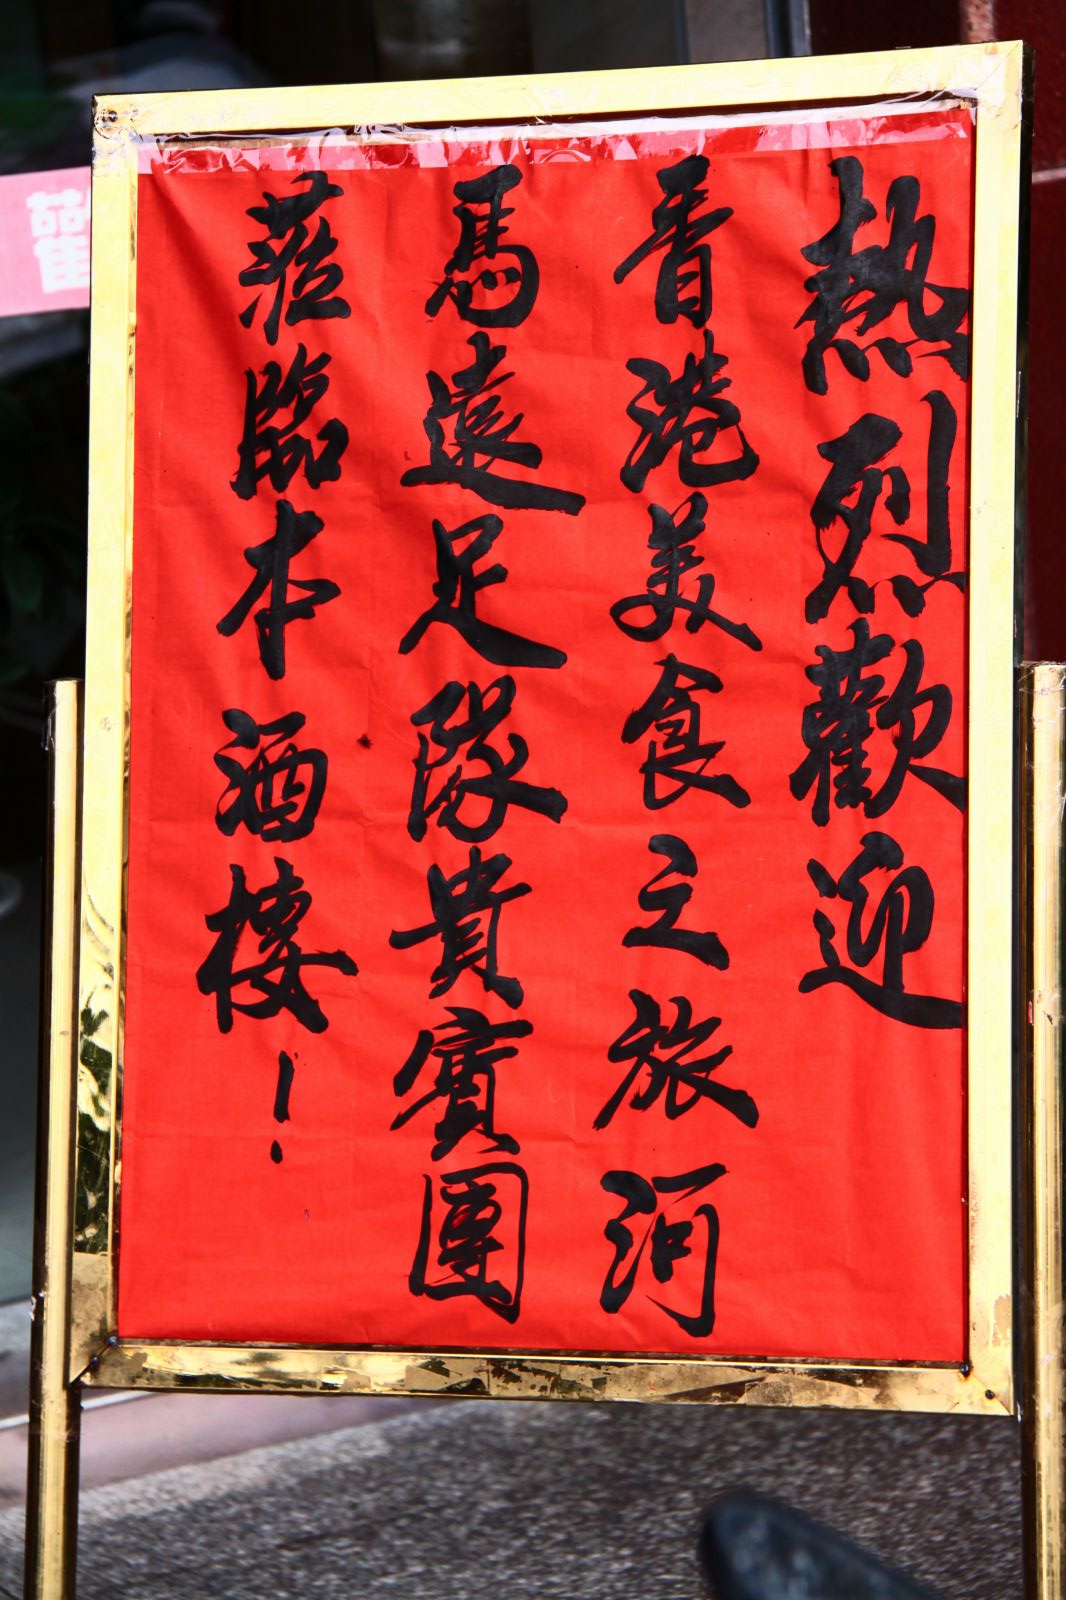 熱烈歡迎
香港美食之旅河
馬遠足隊貴賓團
蒞臨本酒樓！